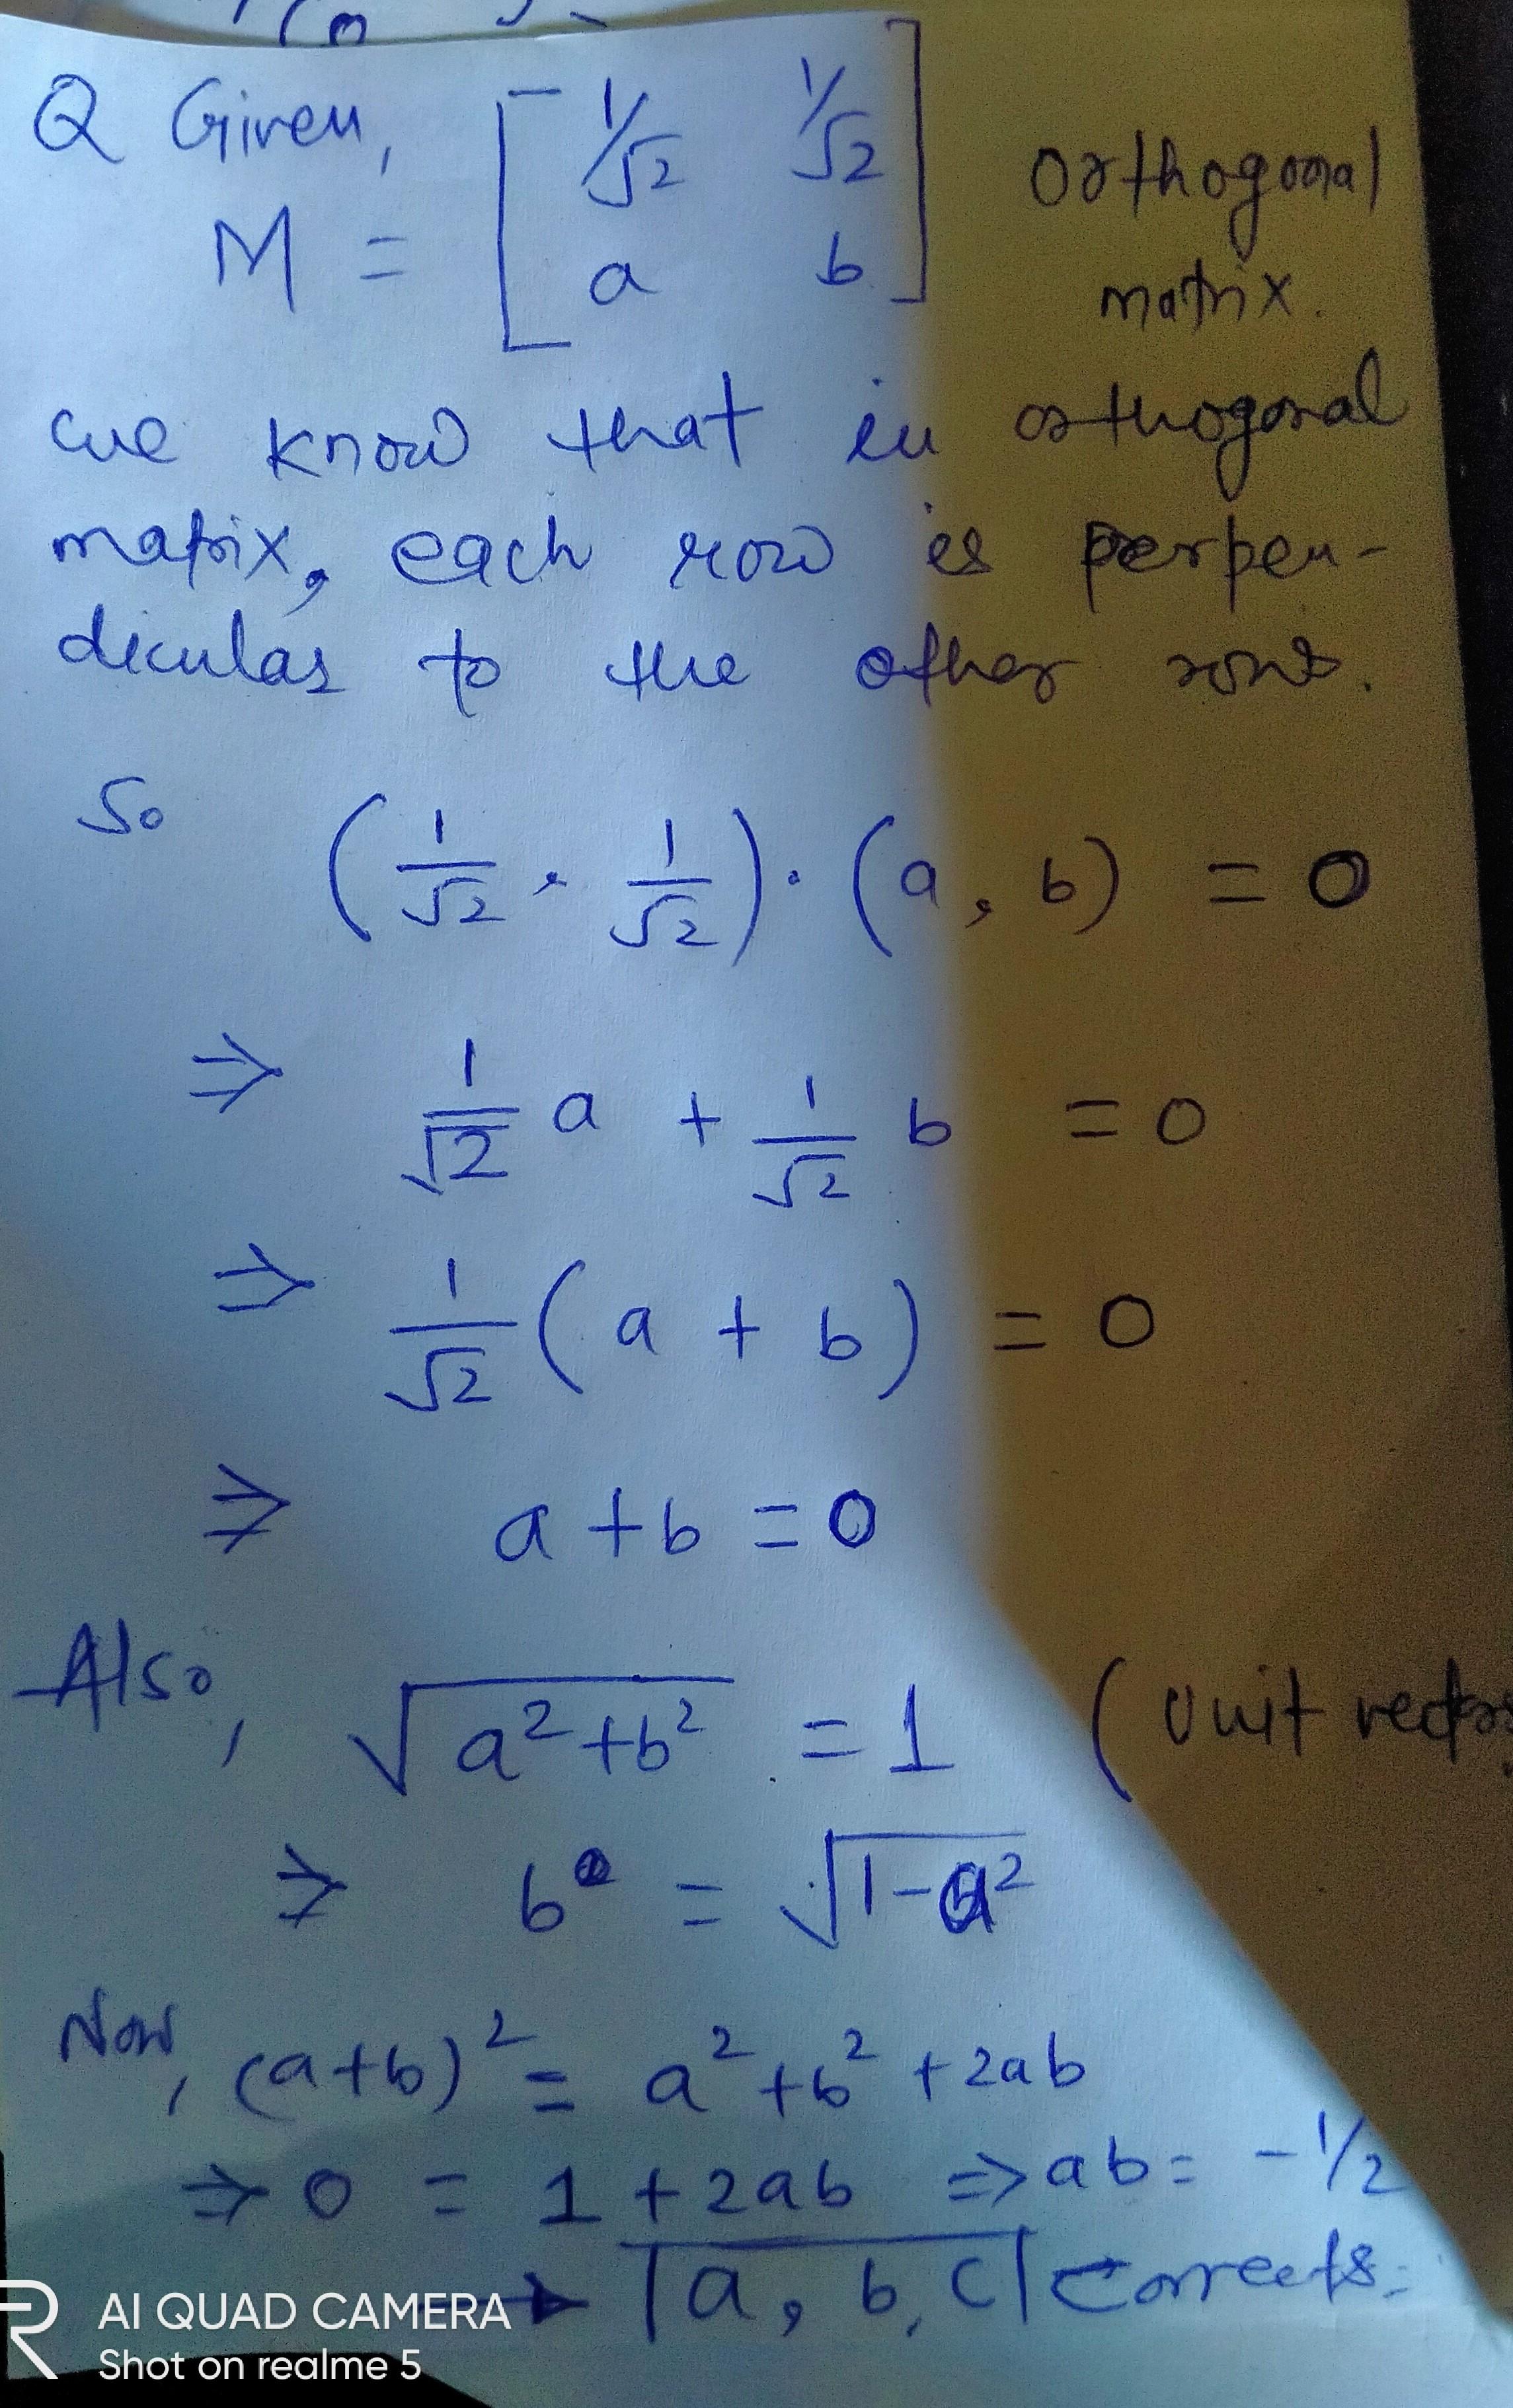 Q Given,
M = [ 1/√2 1/√2
a b ] Orthogonal
matrix.
we know that in orthogonal
matrix, each row is perpen-
dicular to the other rows.
So (1/√2 , 1/√2) · (a, b) = 0
⇒ 1/√2 a + 1/√2 b = 0
⇒ 1/√2 (a + b) = 0
⇒ a + b = 0
Also, √(a²+b²) = 1 (Unit vector
⇒ b = √(1-a²)
Now, (a+b)² = a² + b² + 2ab
⇒ 0 = 1 + 2ab ⇒ ab = -1/2
→ a, b, c corrects.
AI QUAD CAMERA
Shot on realme 5